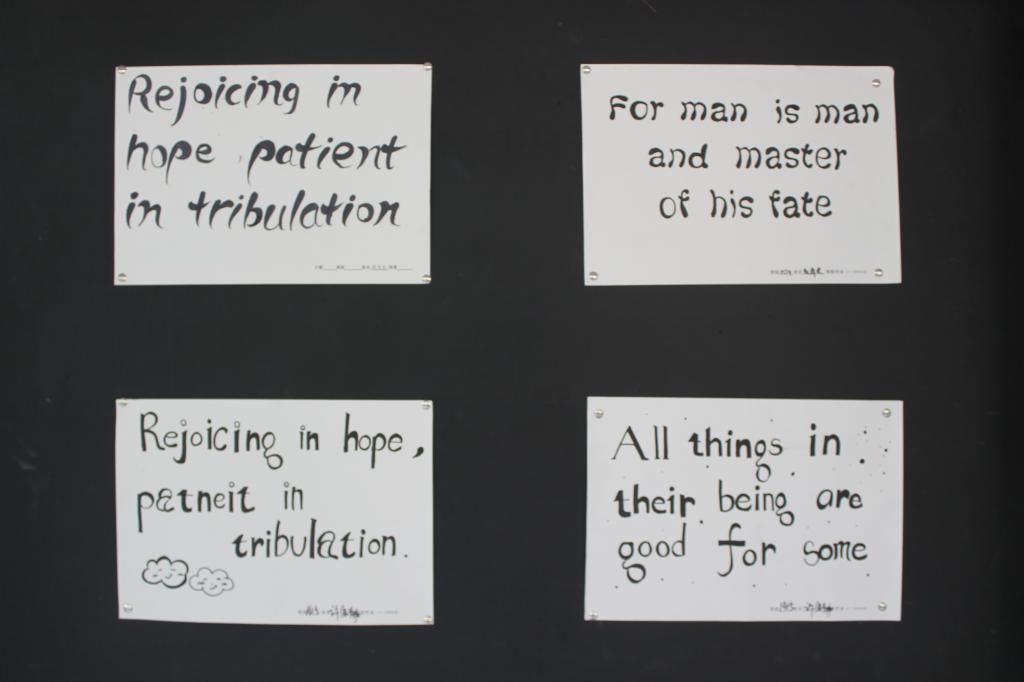 Rejoicing in
hope , patient
in tribulation
For man is man
and master
of his fate
Rejoicing in hope,
patneit in
tribulation.
All things in
their being are
good for some